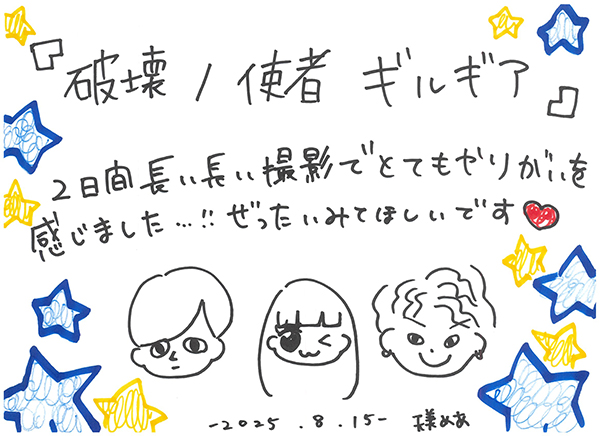 『破壊ノ使者 ギルギア』
2日間長い長い撮影でとてもやりがいを
感じました…!! ぜったいみてほしいです♥
-2025.8.15-